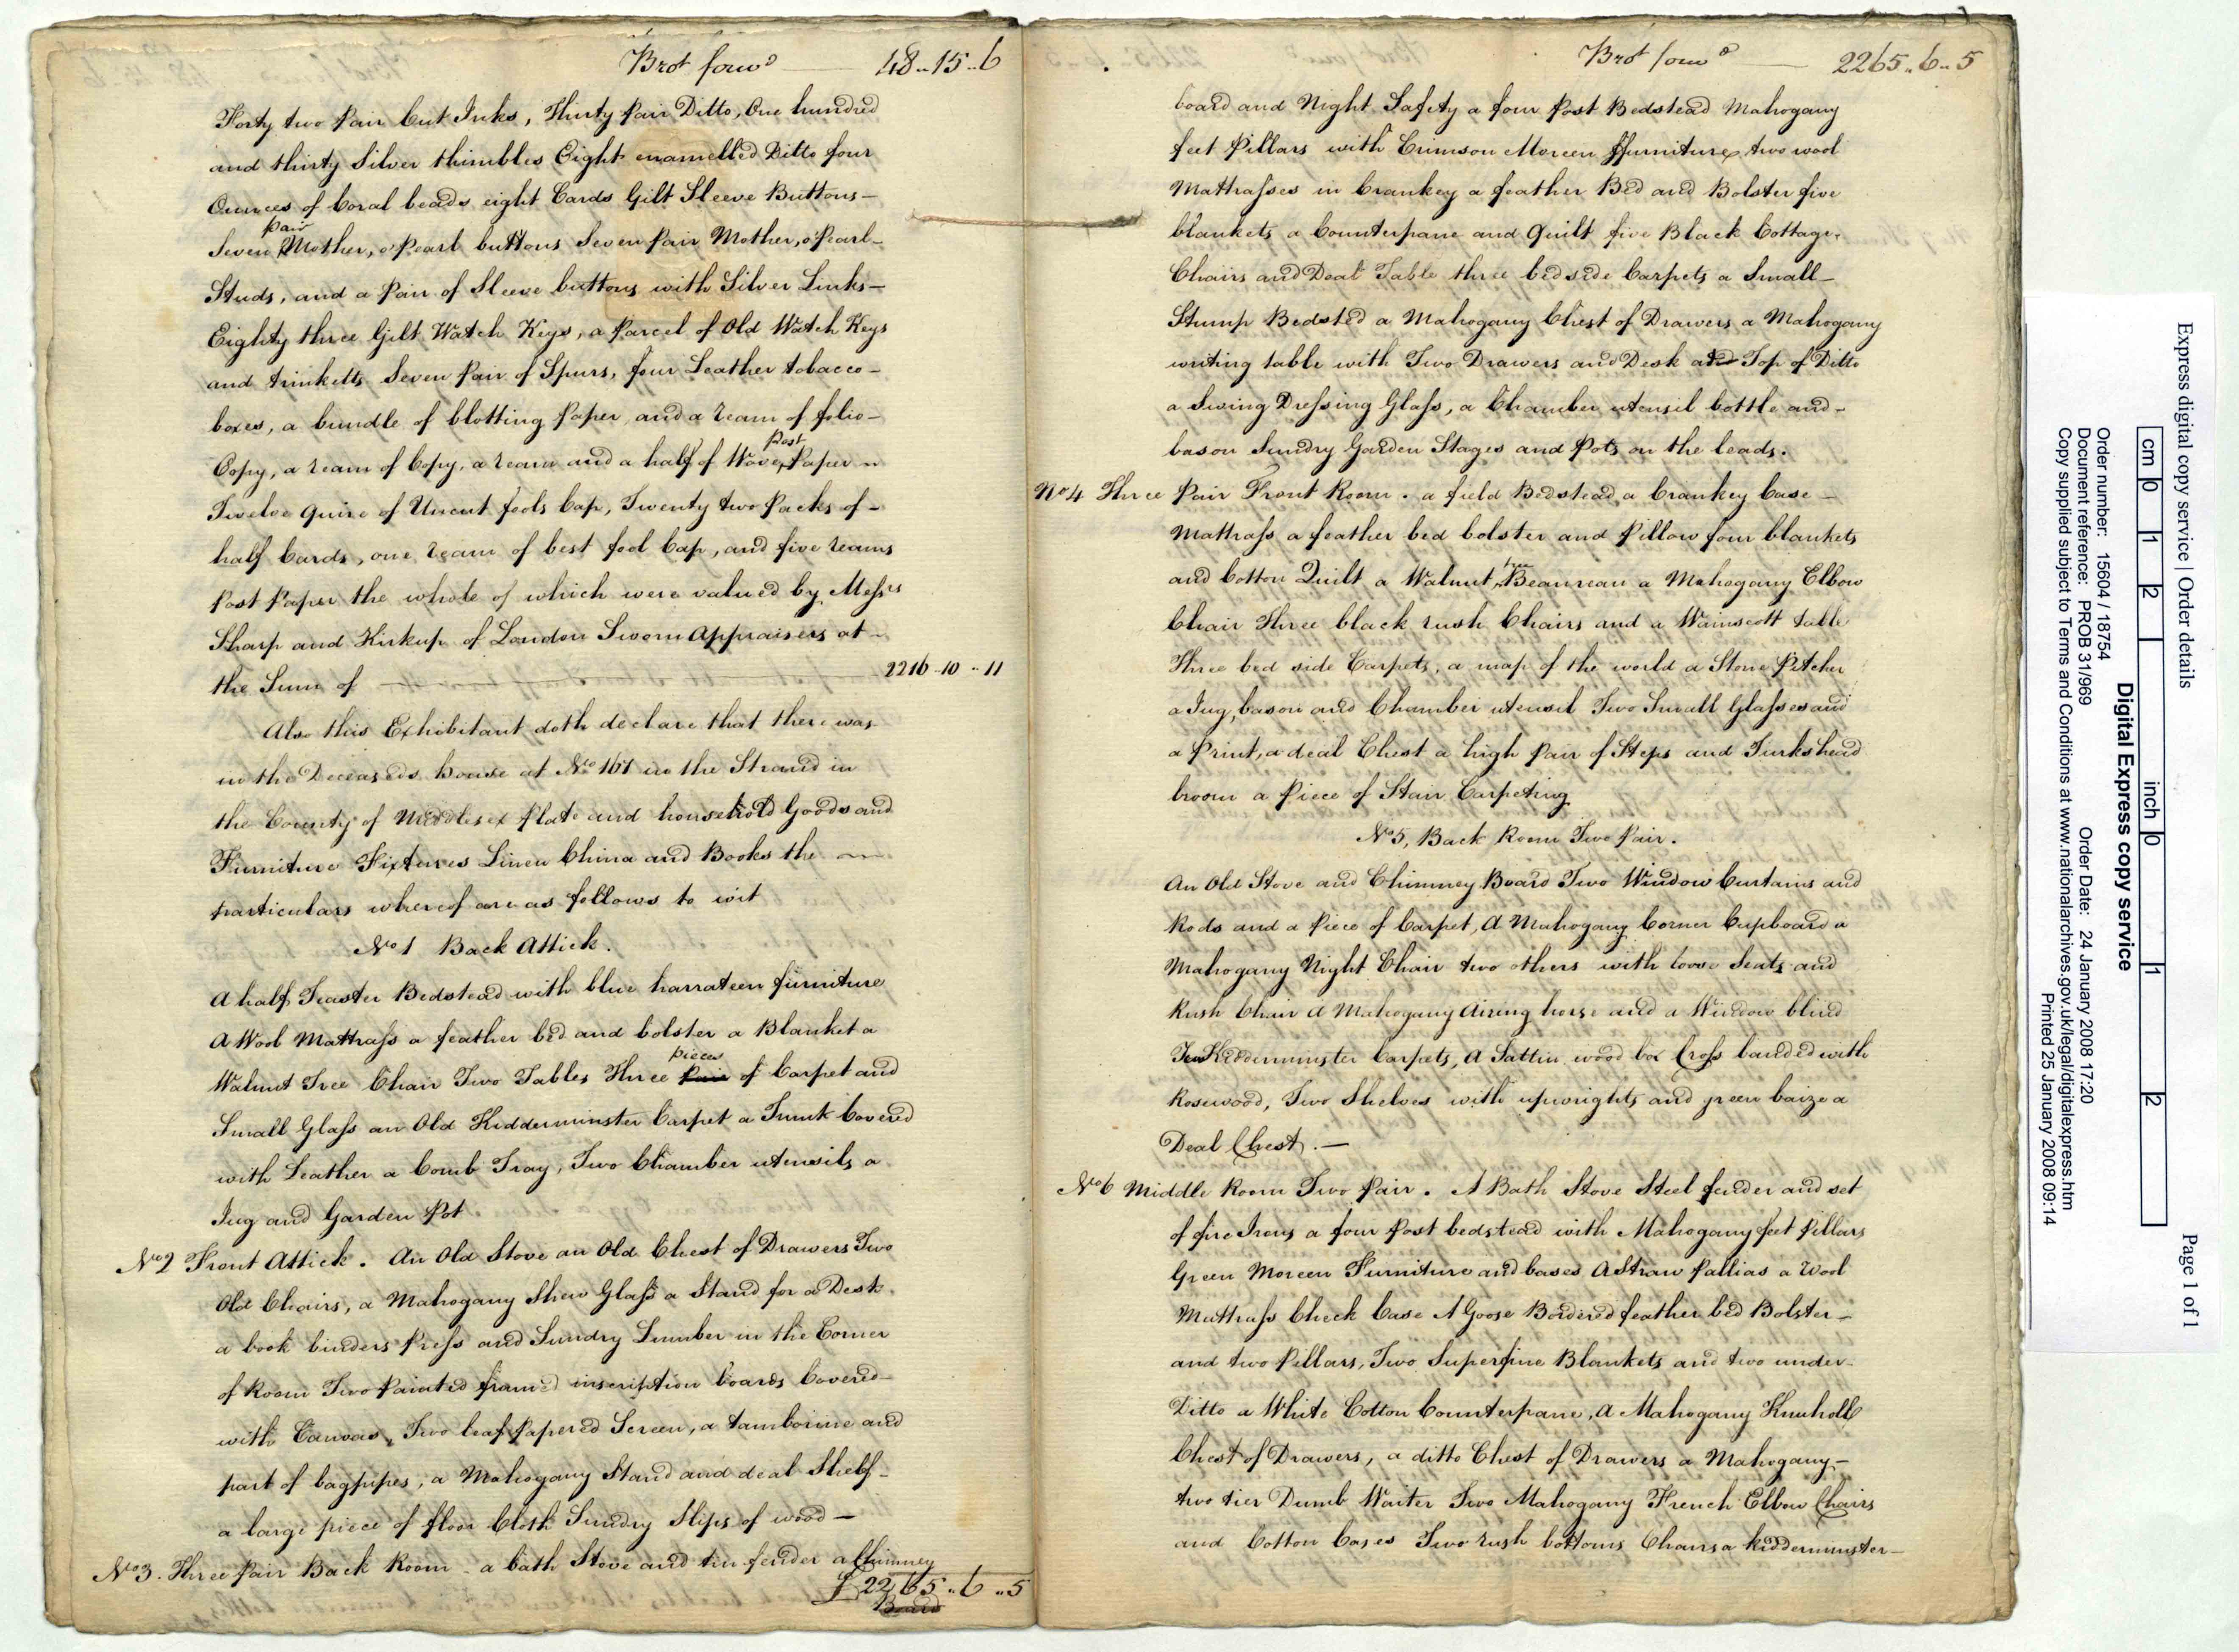 Brot forwd 48..15..6
Forty two Pair Cut Inks, Thirty Pair Ditto, One hundred
and thirty Silver thimbles Eight enamelled Ditto four
Ounces of Coral beads eight Cards Gilt Sleeve Buttons-
pair
Seven Mother, o'Pearl buttons Seven Pair Mother, o'Pearl-
Studs, and a Pair of Sleeve buttons with Silver Links-
Eighty three Gilt Watch Keys, a Parcel of Old Watch Keys
and trinketts Seven Pair of Spurs, four Leather tobacco-
boxes, a bundle of blotting Paper, and a ream of folio-
Post
Copy, a ream of Copy, a ream and a half of Wove Paper
Twelve quire of Uncut fools Cap, Twenty two Packs of-
half Cards, one ream of best fool Cap, and five reams
Post Paper the whole of which were valued by Messrs
Sharp and Kirkup of London Sworn Appraisers at-
the Sum of 2216-10..11
Also this Exhibitant doth declare that there was
in the Deceaseds house at No 161 in the Strand in
the County of Middlesex Plate and household Goods and
Furniture Fixtures Linen China and Books the
particulars whereof are as follows to wit
No 1 Back Attick.
A half Teaster Bedstead with blue harrateen furniture
A Wool Mattrass a feather bed and bolster a Blanket a
pieces
Walnut Tree Chair Two Tables Three Pair of Carpet and
Small Glass an Old Kidderminster Carpet a Trunk Covered
with Leather a Comb Tray, Two Chamber utensils a
Jug and Garden Pot.
No 2 Front Attick. An Old Stove an Old Chest of Drawers Two
Old Chairs, a Mahogany Shew Glass a Stand for a Desk
a book binders Press and Sundry Lumber in the Corner
of Room Two Painted framed inscription boards Covered-
with Canvas, Two leaf Papered Screen, a tamborine and
part of bagpipes, a Mahogany Stand and deal Shelf-
a large piece of floor Cloth Sundry Slips of wood-
No 3. Three Pair Back Room - a bath Stove and tin fender a Chimney
£2265..6..5
Board
Brot forwd 2265..6..5
board and Night Safety a four Post Bedstead Mahogany
feet Pillars with Crimson Moreen ffurniture two wool
Mattrasses in Crankey a feather Bed and Bolster five
blankets a Counterpane and Quilt five Black Cottage
Chairs and Deal Table three bedside Carpets a Small-
Stump Bedsted a Mahogany Chest of Drawers a Mahogany
writing table with Two Drawers and Desk and Top of Ditto
a Swing Dressing Glass, a Chamber utensil bottle and-
bason Sundry Garden Stages and Pots on the leads.
No 4 Three Pair Front Room. a field Bedstead a Crankey Case-
Mattrass a feather bed bolster and Pillow four blankets
tree
and Cotton Quilt a Walnut Beaureau a Mahogany Elbow
Chair Three black rush Chairs and a Wainscott table
Three bed side Carpets, a map of the world a Stone Pitcher
a Jug, bason and Chamber utensil Two Small Glasses and
a Print, a deal Chest a high Pair of Steps and Turks head
broom a Piece of Stair Carpeting
No 5, Back Room Two Pair.
An Old Stove and Chimney Board Two Window Curtains and
Rods and a Piece of Carpet, A Mahogany Corner Cupboard a
Mahogany Night Chair two others with loose Seats and
Rush Chair A Mahogany Airing horse and a Window blind
Kidderminster Carpets, A Sattin wood box Cross banded with
Rosewood, Two Shelves with uprights and green baize a
Deal Chest.-
No 6 Middle Room Two Pair. A Bath Stove Steel fender and set
of fire Irons a four Post bedstead with Mahogany feet Pillars
Green Moreen Furniture and bases A Straw Pallias a Wool
Mattrass Check Case A Goose Bordered feather bed Bolster-
and two Pillars, Two Superfine Blankets and two under-
Ditto a White Cotton Counterpane, A Mahogany Knuholl
Chest of Drawers, a ditto Chest of Drawers a Mahogany-
two tier Dumb Waiter Two Mahogany French Elbow Chairs
and Cotton Cases Two rush bottoms Chairs a kidderminster-
Express digital copy service | Order details
Page 1 of 1
Digital Express copy service
Order number: 15604 / 18754
Order Date: 24 January 2008 17:20
Document reference: PROB 31/969
Copy supplied subject to Terms and Conditions at www.nationalarchives.gov.uk/legal/digitalexpress.htm
Printed 25 January 2008 09:14
cm 0 1 2 inch 0 1 2